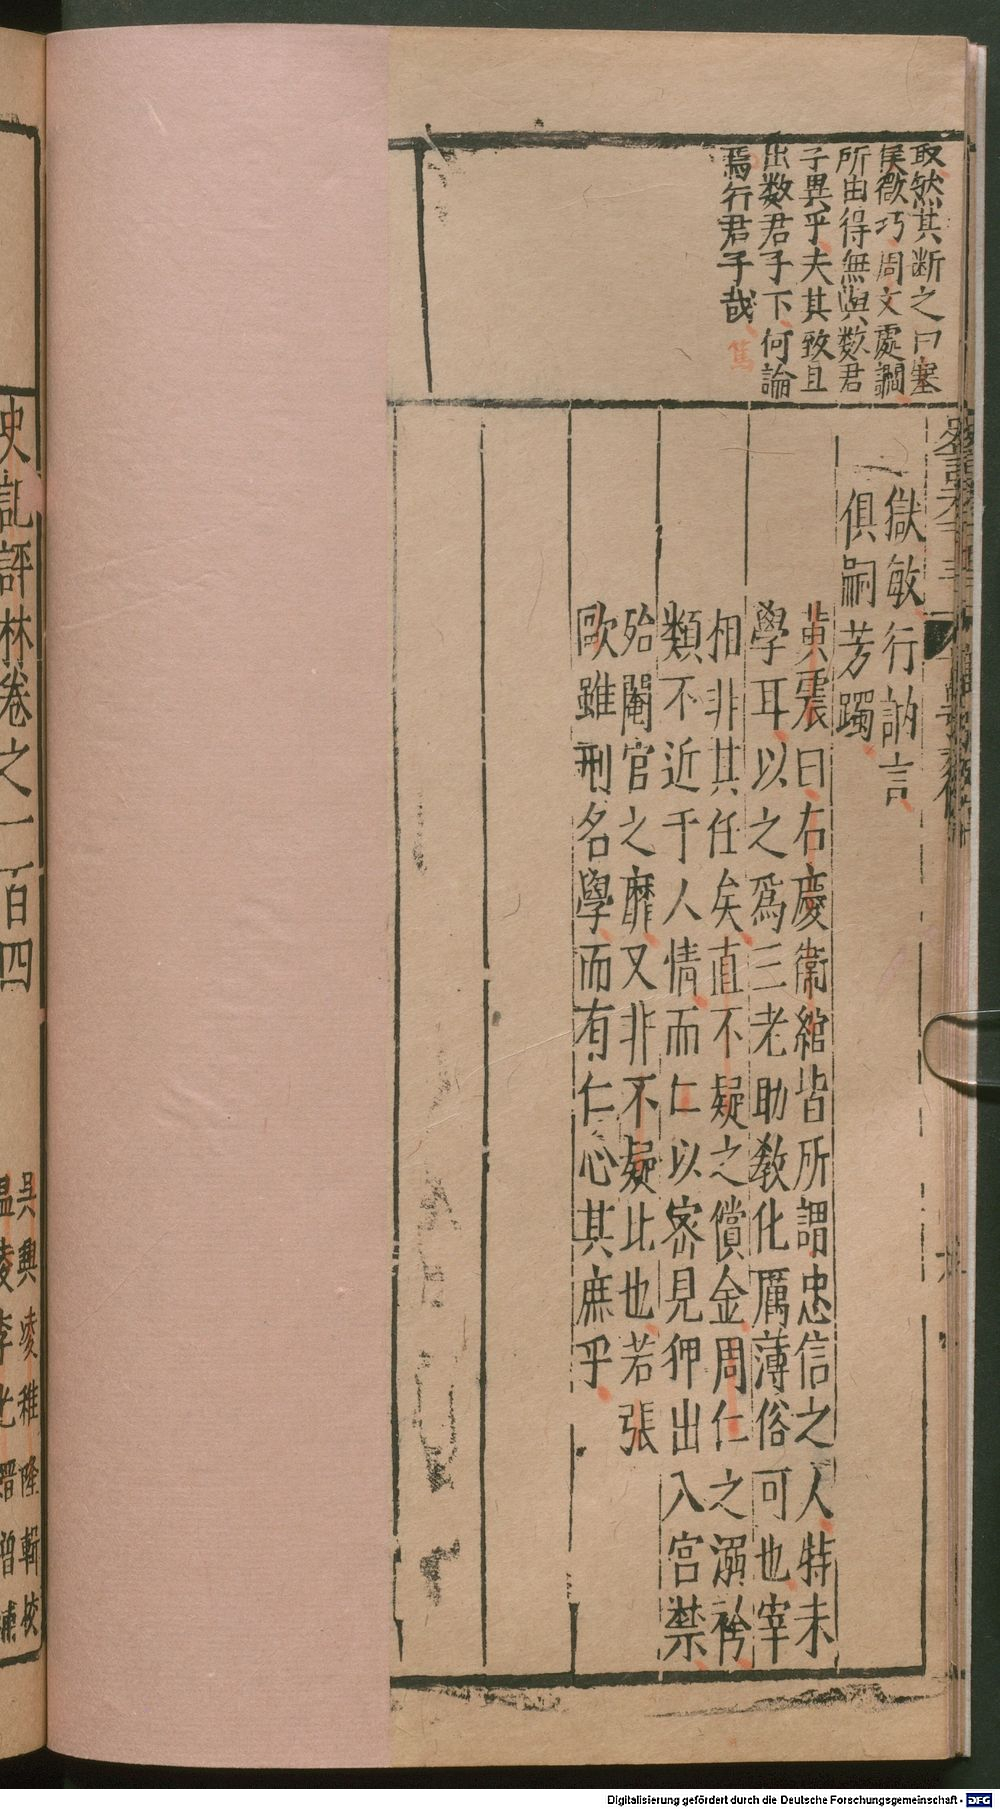 取然其断之曰塞
侯微巧周文處讇
所由得無與数君
子異乎夫其致且
出数君子下何論
焉行君子哉
篤
獄敏行訥言
俱嗣芳躅
黄震曰石慶衛綰皆所謂忠信之人特未
學耳以之爲三老助教化厲薄俗可也宰
相非其任矣直不疑之償金周仁之溺袴
類不近于人情而仁以宻見狎出入宫禁
殆閹官之靡又非不疑比也若張
歐雖刑名學而有仁心其庶乎
史記評林卷之一百四
吳興凌稚隆輯校
温陵李光縉增補
Digitalisierung gefördert durch die Deutsche Forschungsgemeinschaft - DFG